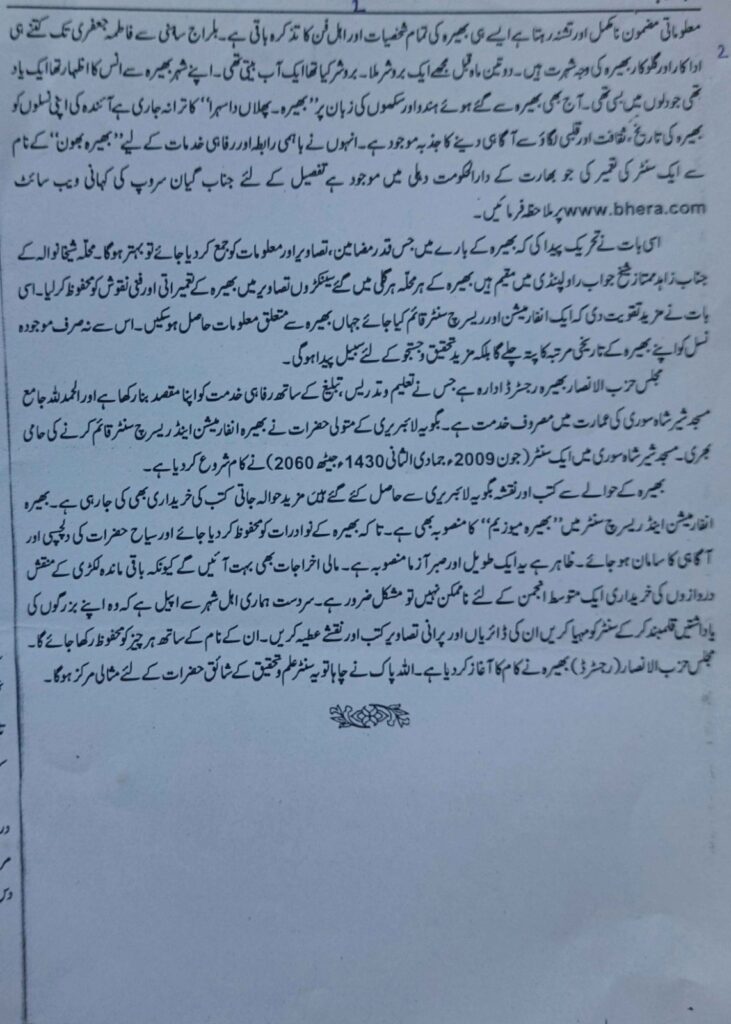 2
2
معلوماتی مضمون نامکمل اور تشنہ رہتا ہے ایسے ہی بھیرہ کی تمام شخصیات اور اہل فن کا تذکرہ باقی ہے۔ بلراج ساہنی سے فاطمہ جعفری تک کتنے ہی
اداکار اور گلوکار بھیرہ کی وجہ شہرت ہیں۔ دو تین ماہ قبل مجھے ایک بروشر ملا۔ بروشر کیا تھا ایک آپ بیتی تھی۔ اپنے شہر بھیرہ سے انس کا اظہار تھا ایک یاد
تھی جو دلوں میں بسی تھی۔ آج بھی بھیرہ سے گئے ہوئے ہندو اور سکھوں کی زبان پر "بھیرہ۔ پھلاں دا سہرا" کا ترانہ جاری ہے آئندہ کی اپنی نسلوں کو
بھیرہ کی تاریخ، ثقافت اور قلبی لگاؤ سے آگاہی دینے کا جذبہ موجود ہے۔ انہوں نے باہمی رابطہ اور رفاہی خدمات کے لیے "بھیرہ بھون" کے نام
سے ایک سنٹر کی تعمیر کی جو بھارت کے دارالحکومت دہلی میں موجود ہے تفصیل کے لئے جناب گیان سروپ کی کہانی ویب سائٹ
www.bhera.com پر ملاحظہ فرمائیں۔
اسی بات نے تحریک پیدا کی کہ بھیرہ کے بارے میں جس قدر مضامین، تصاویر اور معلومات کو جمع کر دیا جائے تو بہتر ہوگا۔ محلہ شیخانوالہ کے
جناب زاہد ممتاز شیخ جو اب راولپنڈی میں مقیم ہیں بھیرہ کے ہر محلہ ہر گلی میں گئے سینکڑوں تصاویر میں بھیرہ کے تعمیراتی اور فنی نقوش کو محفوظ کر لیا۔ اسی
بات نے مزید تقویت دی کہ ایک انفارمیشن اور ریسرچ سنٹر قائم کیا جائے جہاں بھیرہ سے متعلق معلومات حاصل ہو سکیں۔ اس سے نہ صرف موجودہ
نسل کو اپنے بھیرہ کے تاریخی مرتبہ کا پتہ چلے گا بلکہ مزید تحقیق و جستجو کے لئے سبیل پیدا ہوگی۔
مجلس حزب الانصار بھیرہ رجسٹرڈ ادارہ ہے جس نے تعلیم و تدریس، تبلیغ کے ساتھ رفاہی خدمت کو اپنا مقصد بنا رکھا ہے اور الحمدللہ جامع
مسجد شیر شاہ سوری کی عمارت میں مصروف خدمت ہے۔ بگویہ لائبریری کے متولی حضرات نے بھیرہ انفارمیشن اینڈ ریسرچ سنٹر قائم کرنے کی حامی
بھری۔ مسجد شیر شاہ سوری میں ایک سنٹر (جون 2009ء جمادی الثانی 1430ء جیٹھ 2060) نے کام شروع کر دیا ہے۔
بھیرہ کے حوالے سے کتب اور نقشہ بگویہ لائبریری سے حاصل کئے گئے ہیں مزید حوالہ جاتی کتب کی خریداری بھی کی جا رہی ہے۔ بھیرہ
انفارمیشن اینڈ ریسرچ سنٹر میں "بھیرہ میوزیم" کا منصوبہ بھی ہے۔ تاکہ بھیرہ کے نوادرات کو محفوظ کر دیا جائے اور سیاح حضرات کی دلچسپی اور
آگاہی کا سامان ہو جائے۔ ظاہر ہے یہ ایک طویل اور صبر آزما منصوبہ ہے۔ مالی اخراجات بھی بہت آئیں گے کیونکہ باقی ماندہ لکڑی کے منقش
دروازوں کی خریداری ایک متوسط انجمن کے لئے ناممکن نہیں تو مشکل ضرور ہے۔ سردست ہماری اہل شہر سے اپیل ہے کہ وہ اپنے بزرگوں کی
یاداشتیں قلمبند کر کے سنٹر کو مہیا کریں ان کی ڈائریاں اور پرانی تصاویر کتب اور نقشے عطیہ کریں۔ ان کے نام کے ساتھ ہر چیز کو محفوظ رکھا جائے گا۔
مجلس حزب الانصار (رجسٹرڈ) بھیرہ نے کام کا آغاز کر دیا ہے۔ اللہ پاک نے چاہا تو یہ سنٹر علم و تحقیق کے شائق حضرات کے لئے مثالی مرکز ہوگا۔